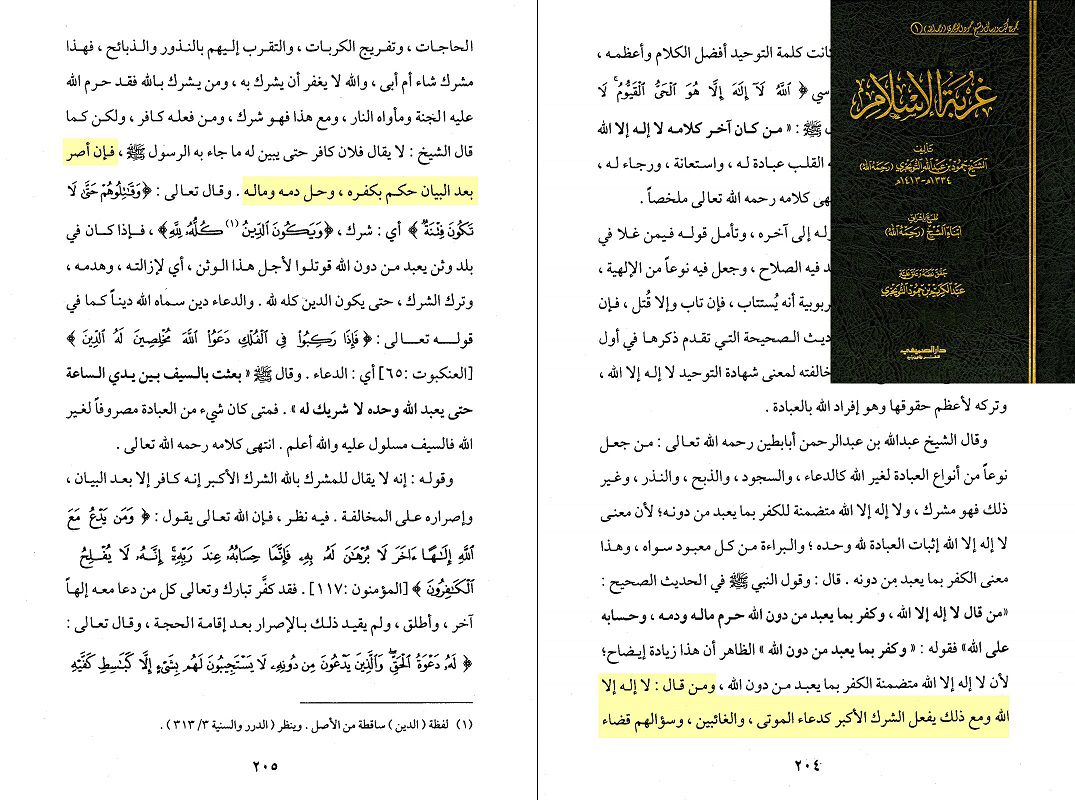 غربة الإسلام
تأليف
الشيخ حمود بن عبدالله التويجري (رحمه الله)
١٣٣٤هـ - ١٤١٣هـ
أبناء الشيخ (رحمه الله)
عبدالكريم بن حمود التويجري
دار الصميعي
كانت كلمة التوحيد أفضل الكلام وأعظمه ،
﴿ ٱللَّهُ لَآ إِلَٰهَ إِلَّا هُوَ ٱلْحَىُّ ٱلْقَيُّومُ ۚ لَا
ﷺ : « من كان آخر كلامه لا إله إلا الله
القلب عبادة له ، واستعانة ، ورجاء له ،
كلامه رحمه الله تعالى ملخصاً .
إلى آخره ، وتأمل قوله فيمن غلا في
فيه الصلاح ، وجعل فيه نوعاً من الإلهية ،
أنه يُستتاب ، فإن تاب وإلا قُتل ، فإن
الصحيحة التي تقدم ذكرها في أول
لمعنى شهادة التوحيد لا إله إلا الله ،
وتركه لأعظم حقوقها وهو إفراد الله بالعبادة .
وقال الشيخ عبدالله بن عبدالرحمن أبابطين رحمه الله تعالى : من جعل
نوعاً من أنواع العبادة لغير الله كالدعاء ، والسجود ، والذبح ، والنذر ، وغير
ذلك فهو مشرك ، ولا إله إلا الله متضمنة للكفر بما يعبد من دونه؛ لأن معنى
لا إله إلا الله إثبات العبادة لله وحده ؛ والبراءة من كل معبود سواه ، وهذا
معنى الكفر بما يعبد من دونه . قال : وقول النبي ﷺ في الحديث الصحيح :
«من قال لا إله إلا الله ، وكفر بما يعبد من دون الله حرم ماله ودمه ، وحسابه
على الله» فقوله : « وكفر بما يعبد من دون الله » الظاهر أن هذا زيادة إيضاح؛
لأن لا إله إلا الله متضمنة الكفر بما يعبد من دون الله ، ومن قال : لا إله إلا
الله ومع ذلك يفعل الشرك الأكبر كدعاء الموتى ، والغائبين ، وسؤالهم قضاء
٢٠٤
الحاجات ، وتفريج الكربات ، والتقرب إليهم بالنذور والذبائح ، فهذا
مشرك شاء أم أبى ، والله لا يغفر أن يشرك به ، ومن يشرك بالله فقد حرم الله
عليه الجنة ومأواه النار ، ومع هذا فهو شرك ، ومن فعله كافر ، ولكن كما
قال الشيخ : لا يقال فلان كافر حتى يبين له ما جاء به الرسول ﷺ ، فإن أصر
بعد البيان حكم بكفره ، وحل دمه وماله . وقال تعالى : ﴿وَقَٰتِلُوهُمْ حَتَّىٰ لَا
تَكُونَ فِتْنَةٌ ﴾ أي : شرك ، ﴿وَيَكُونَ ٱلدِّينُ (١) كُلُّهُۥ لِلَّهِ﴾ ، فإذا كان في
بلد وثن يعبد من دون الله قوتلوا لأجل هذا الوثن ، أي لإزالته ، وهدمه ،
وترك الشرك ، حتى يكون الدين كله لله . والدعاء دين سماه الله ديناً كما في
قوله تعالى : ﴿ فَإِذَا رَكِبُوا۟ فِى ٱلْفُلْكِ دَعَوُا۟ ٱللَّهَ مُخْلِصِينَ لَهُ ٱلدِّينَ ﴾
[العنكبوت :٦٥] أي : الدعاء . وقال ﷺ « بعثت بالسيف بين يدي الساعة
حتى يعبد الله وحده لا شريك له » . فمتى كان شيء من العبادة مصروفاً لغير
الله فالسيف مسلول عليه والله أعلم . انتهى كلامه رحمه الله تعالى .
وقوله : إنه لا يقال للمشرك بالله الشرك الأكبر إنه كافر إلا بعد البيان ،
وإصراره على المخالفة . فيه نظر ، فإن الله تعالى يقول : ﴿ وَمَن يَدْعُ مَعَ
ٱللَّهِ إِلَٰهًا ءَاخَرَ لَا بُرْهَٰنَ لَهُۥ بِهِۦ فَإِنَّمَا حِسَابُهُۥ عِندَ رَبِّهِۦٓ ۚ إِنَّهُۥ لَا يُفْلِحُ
ٱلْكَٰفِرُونَ ﴾ [المؤمنون :١١٧] . فقد كفَّر تبارك وتعالى كل من دعا معه إلهاً
آخر ، وأطلق ، ولم يقيد ذلك بالإصرار بعد إقامة الحجة ، وقال تعالى :
﴿ لَهُۥ دَعْوَةُ ٱلْحَقِّ ۖ وَٱلَّذِينَ يَدْعُونَ مِن دُونِهِۦ لَا يَسْتَجِيبُونَ لَهُم بِشَىْءٍ إِلَّا كَبَٰسِطِ كَفَّيْهِ
(١) لفظة ( الدين ) ساقطة من الأصل . وينظر ( الدرر والسنية ٣١٣/٣ ) .
٢٠٥